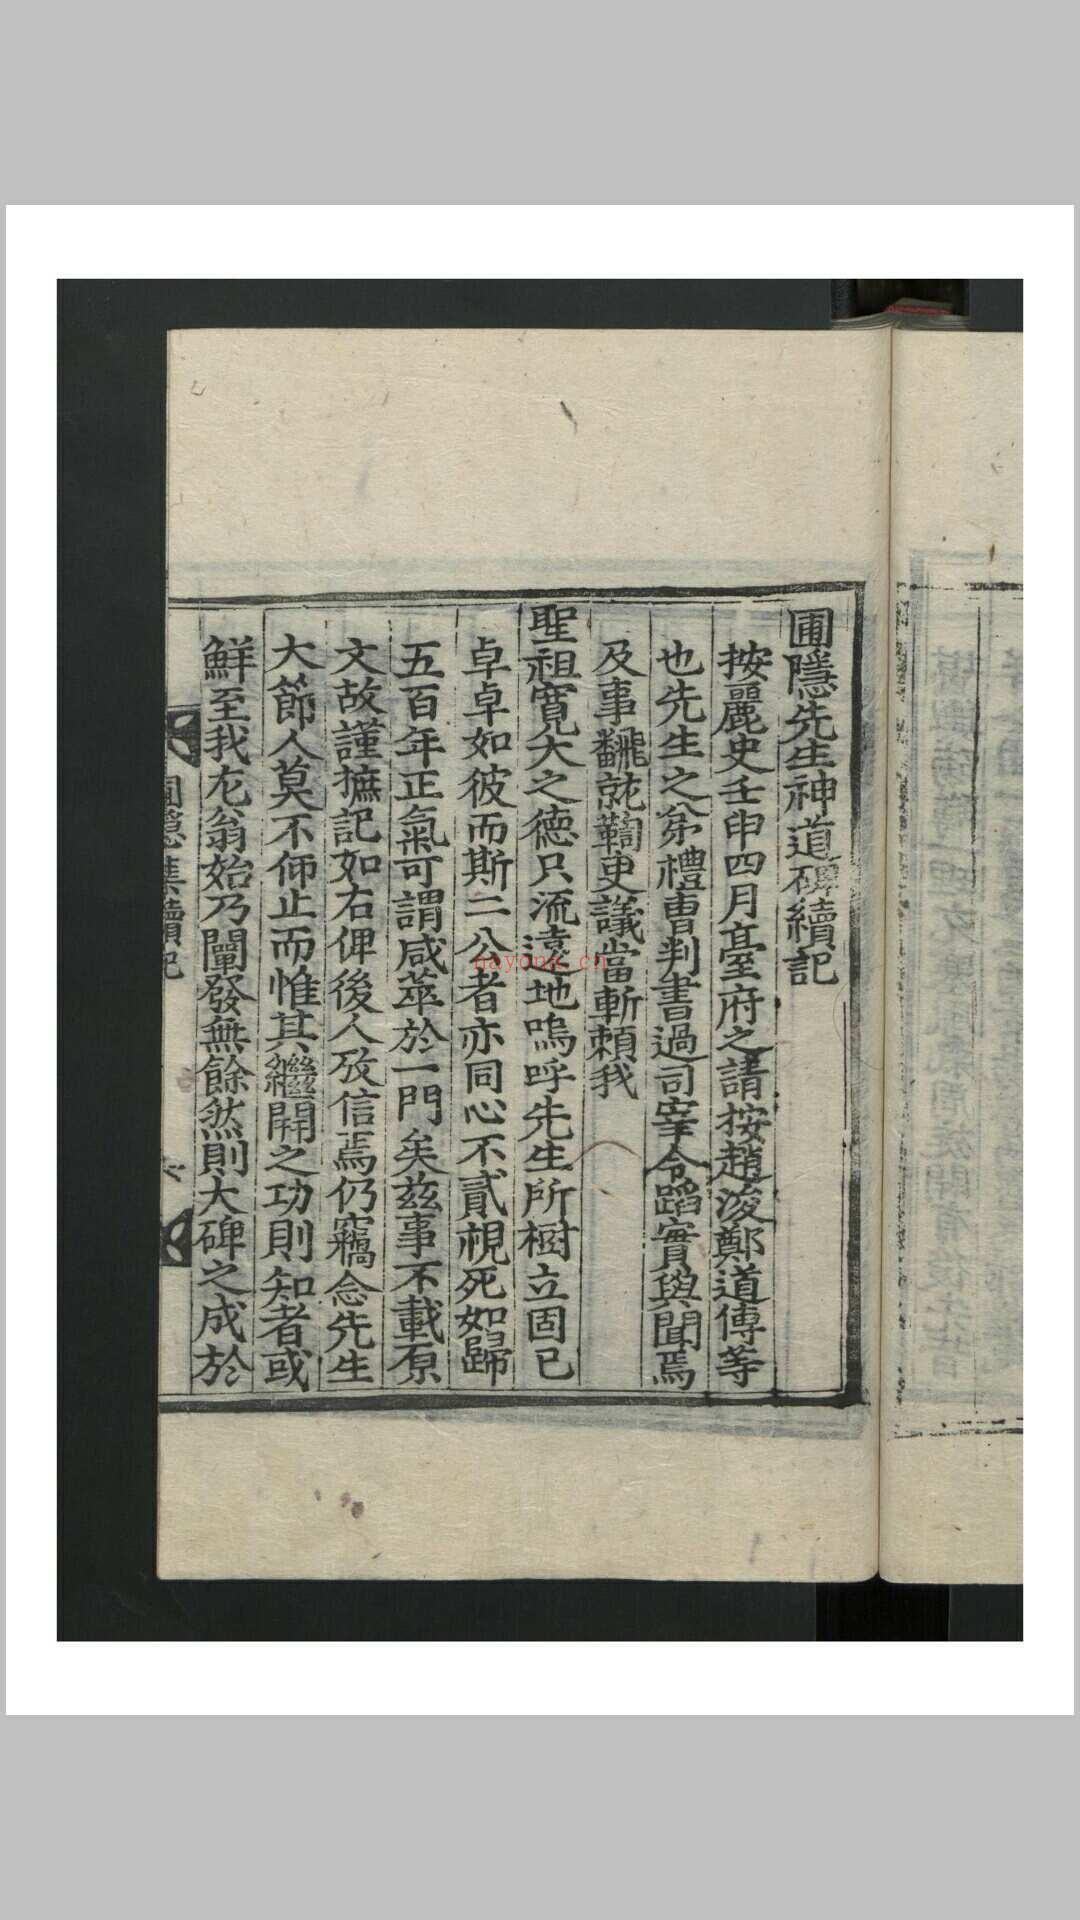 圃隱先生神道碑續記
按麗史壬申四月臺府之請按趙浚鄭道傳等
也先生之弟禮曹判書過司宰令蹈實與聞焉
及事飜就鞫吏議當斬賴我
聖祖寬大之德只流遠地嗚呼先生所樹立固已
卓卓如彼而斯二公者亦同心不貳視死如歸
五百年正氣可謂咸萃於一門矣茲事不載原
文故謹摭記如右俾後人攷信焉仍竊念先生
大節人莫不仰止而惟其繼開之功則知者或
鮮至我尤翁始乃闡發無餘然則大碑之成於
圃隱集續記
nayona.cn